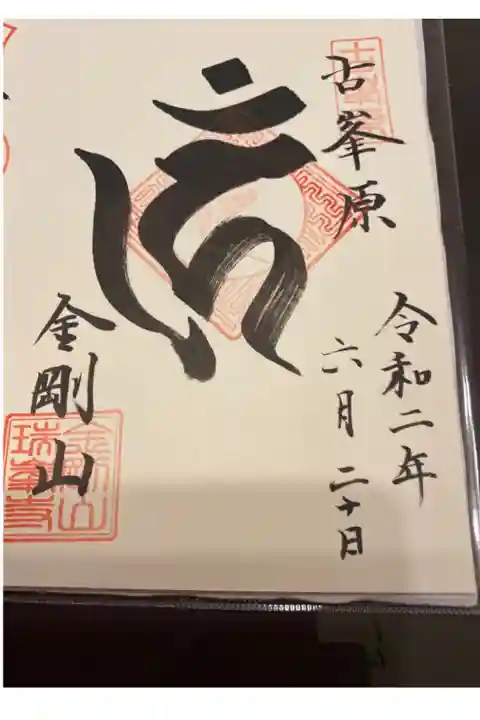 古峯原
令和二年
六月二十日
金剛山
金剛山
瑞峯寺